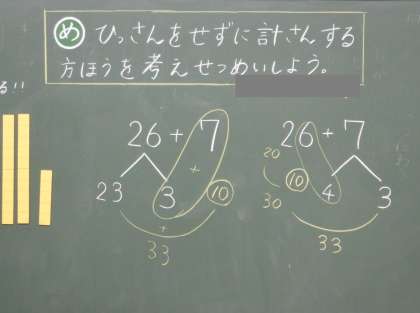 め ひっさんをせずに計さんする
方ほうを考えせつめいしよう。
る!!
26+7
23 3 10
+
+
33
26+7
20
10 4 3
30
33